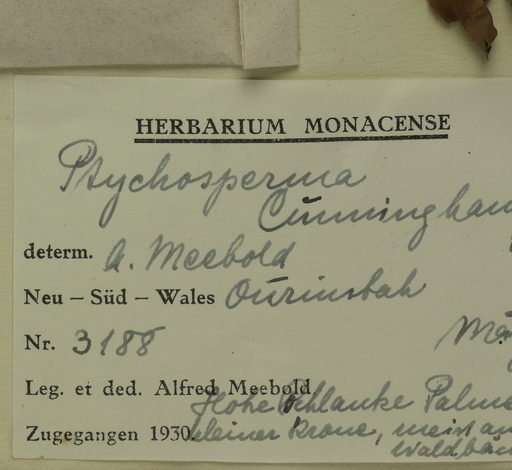 HERBARIUM MONACENSE
Ptychosperma
Cunningham
determ. A. Meebold
Neu – Süd – Wales Ourimbah
Nr. 3188
Leg. et ded. Alfred Meebold.
Hohe schlanke Palme
Zugegangen 1930. kleiner Krone, meist an